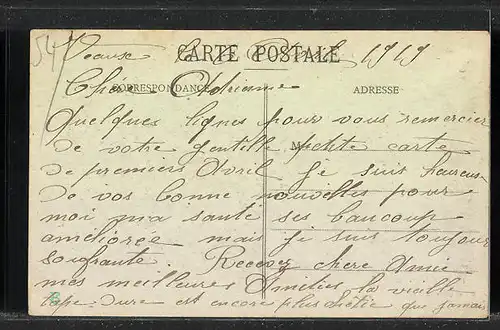 CARTE POSTALE
Avril 1919
CORRESPONDANCE
ADRESSE
Chère Adrienne
Quelques lignes pour vous remercier
de votre gentille petite carte
M
de premiers Avril je suis heureus
de vos bonne nouvelles pour
moi ma santé ses baucoup
améliorée mais je suis toujour
soufrante. Recevez chère Amie
mes meilleures Amitiés la vieille
dure est encore plus que jamais